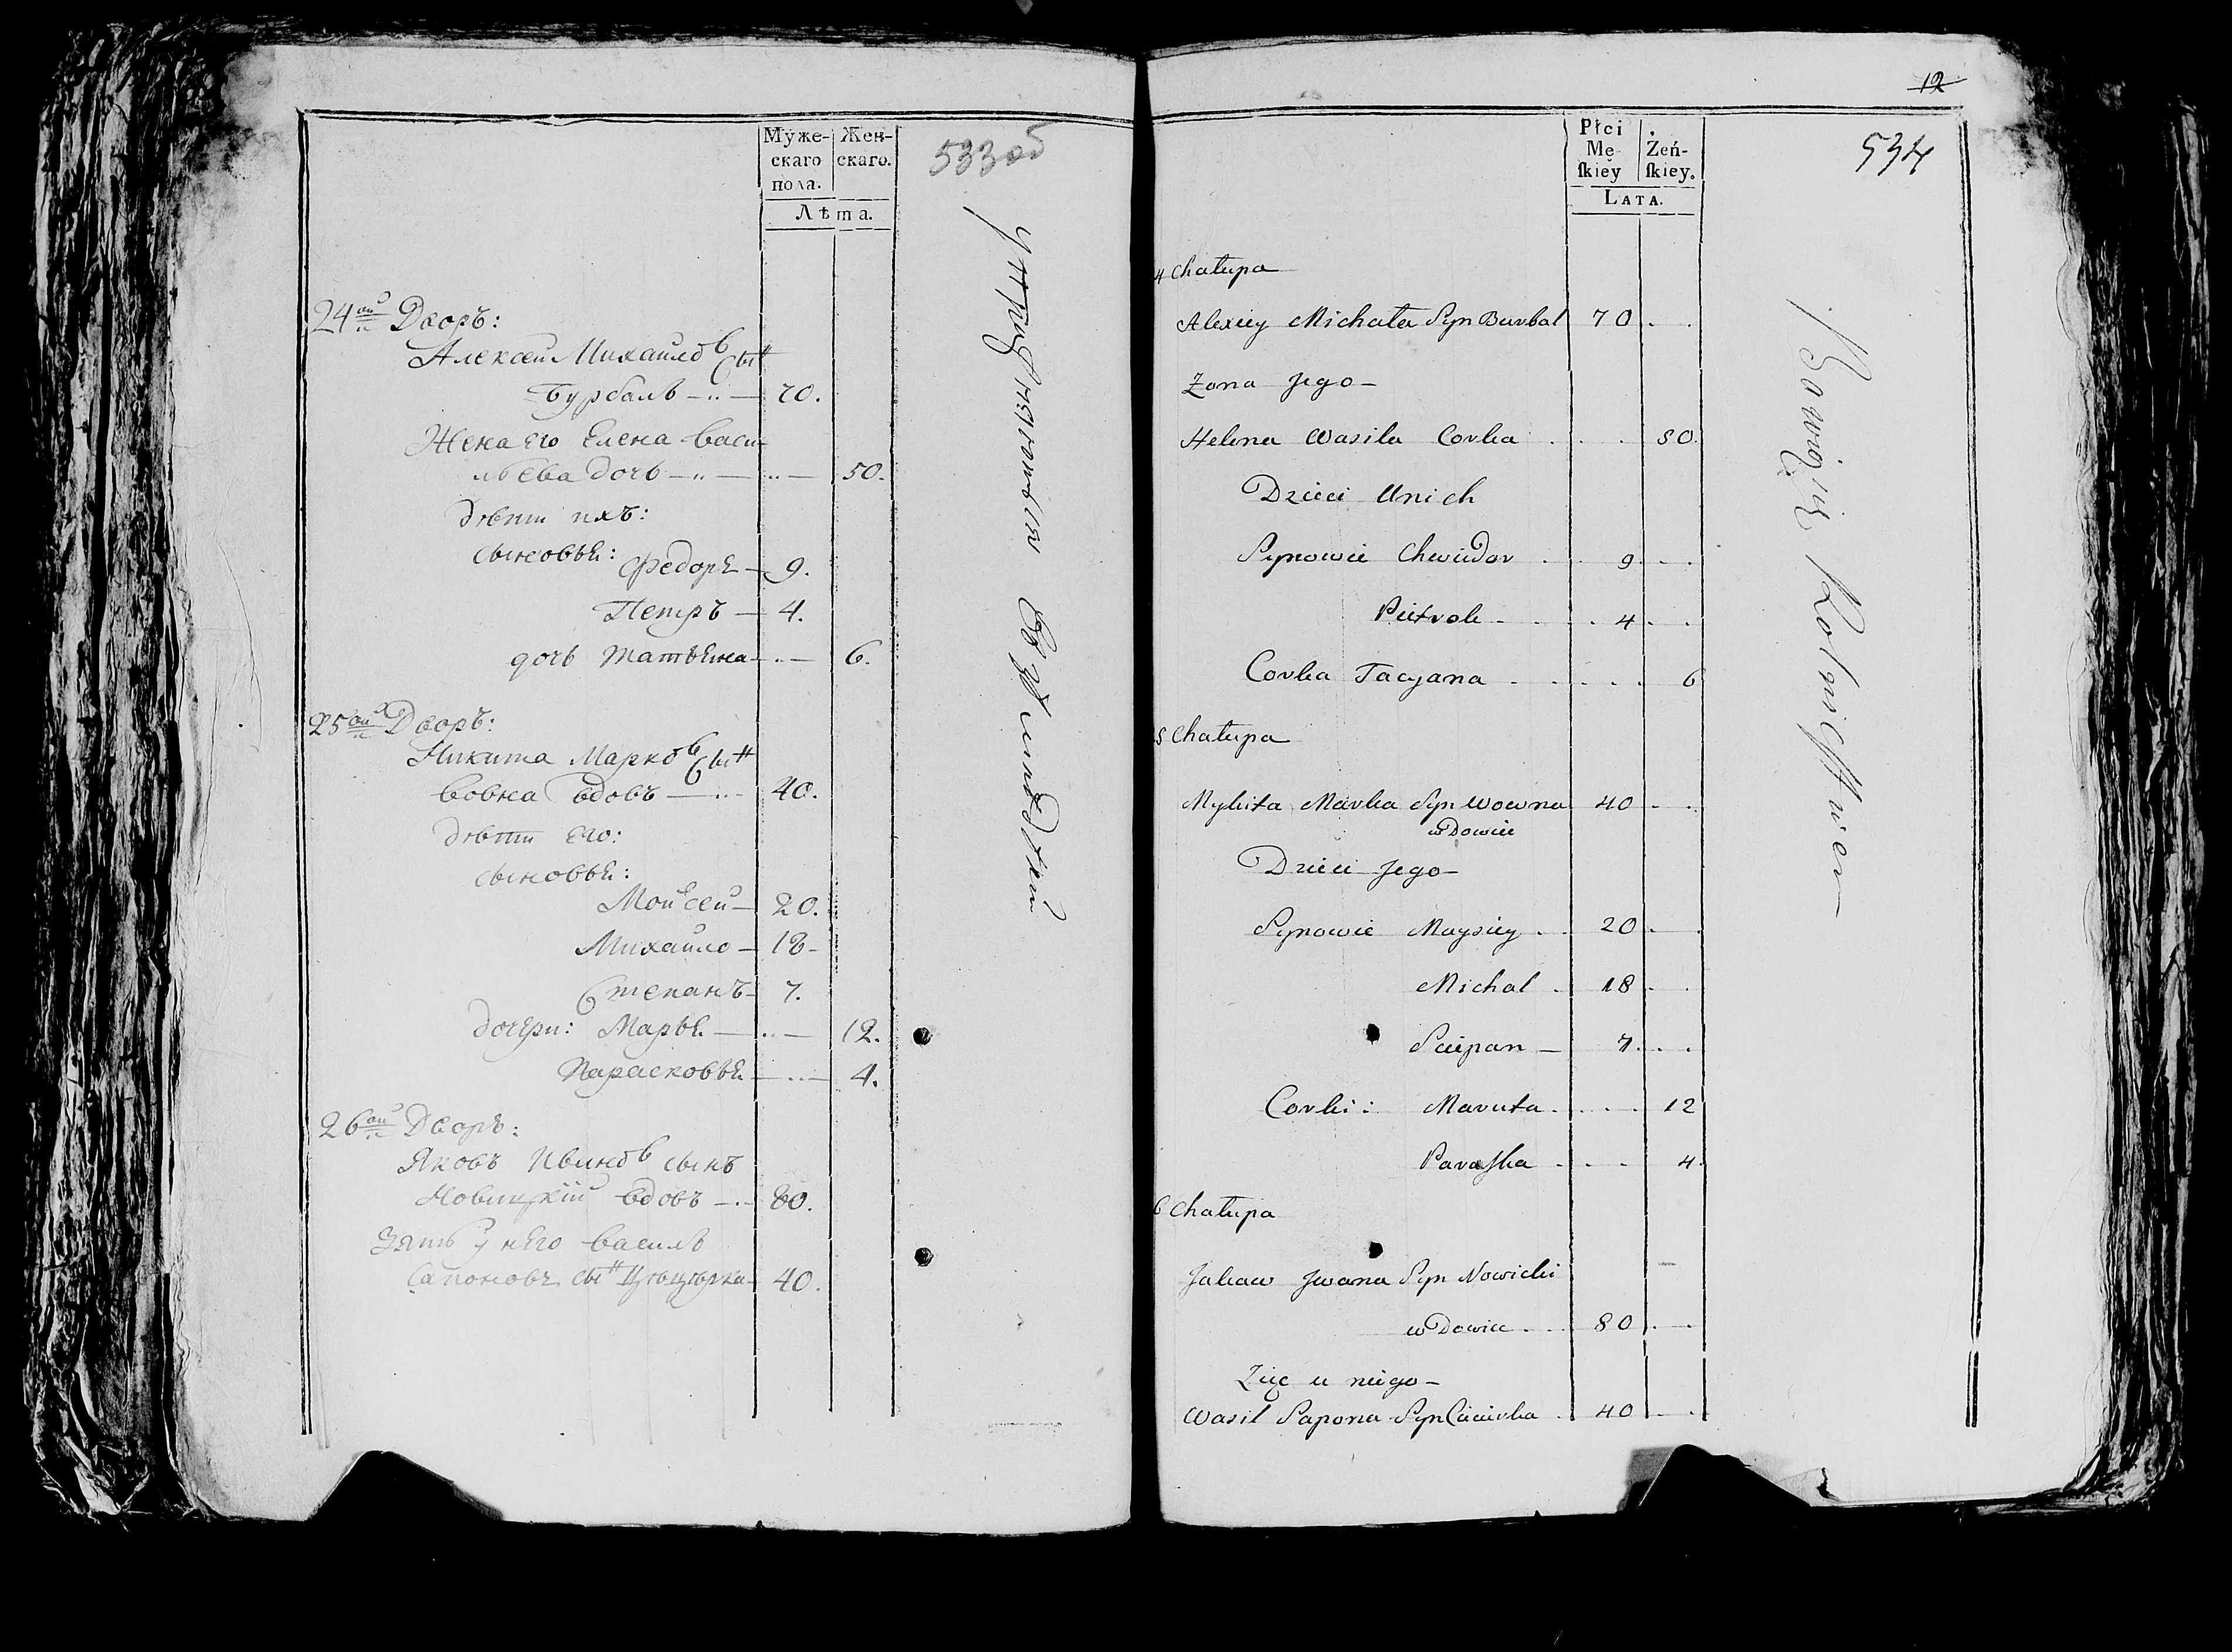 Муже-
скаго
пола.
Жен-
скаго.
Лѣта.
533 об
24ой Дворъ:
Алексей Михайловъ Сын
Бурбалъ 70.
Жена его Елена Васи
льева дочь 50.
дѣти ихъ:
сыновья: Федоръ 9.
Петръ 4.
дочь Татьяна 6.
25ой Дворъ:
Никита Марковъ Сын
Вовна вдовъ 40.
дѣти его:
сыновья:
Мойсей 20.
Михайло 18
Степанъ 7.
дочери: Марья 12.
Парасковья 4.
26ой Дворъ:
Яковъ Ивановъ сынъ
Новицкій вдовъ 80.
Зять у него Василь
Сапоновъ сын 40.
упражняются въ
12
534
Płci
Mę-
ſkiey
Żeń-
ſkiey.
LATA.
4 Chałupa
Alexiey Michała Syn Burbal 70
Zona Jego
Helena Wasila Corka 50.
Dzieci Unich
Synowie Chwiedor 9
Pietrok 4
Corka Tacyana 6
5 Chałupa
Mykita Marka Syn Wowna 40
wDowiec
Dzieci Jego
Synowie Maysiey 20
Michal 18
Sciepan 7
Corki: Maruta 12
Paraſka 4
6 Chałupa
Jakow Jwana Syn Nowicki
wDowiec 80
Zięć u niego
Wasil Sapona Syn 40
Bawią się Rolnictwem